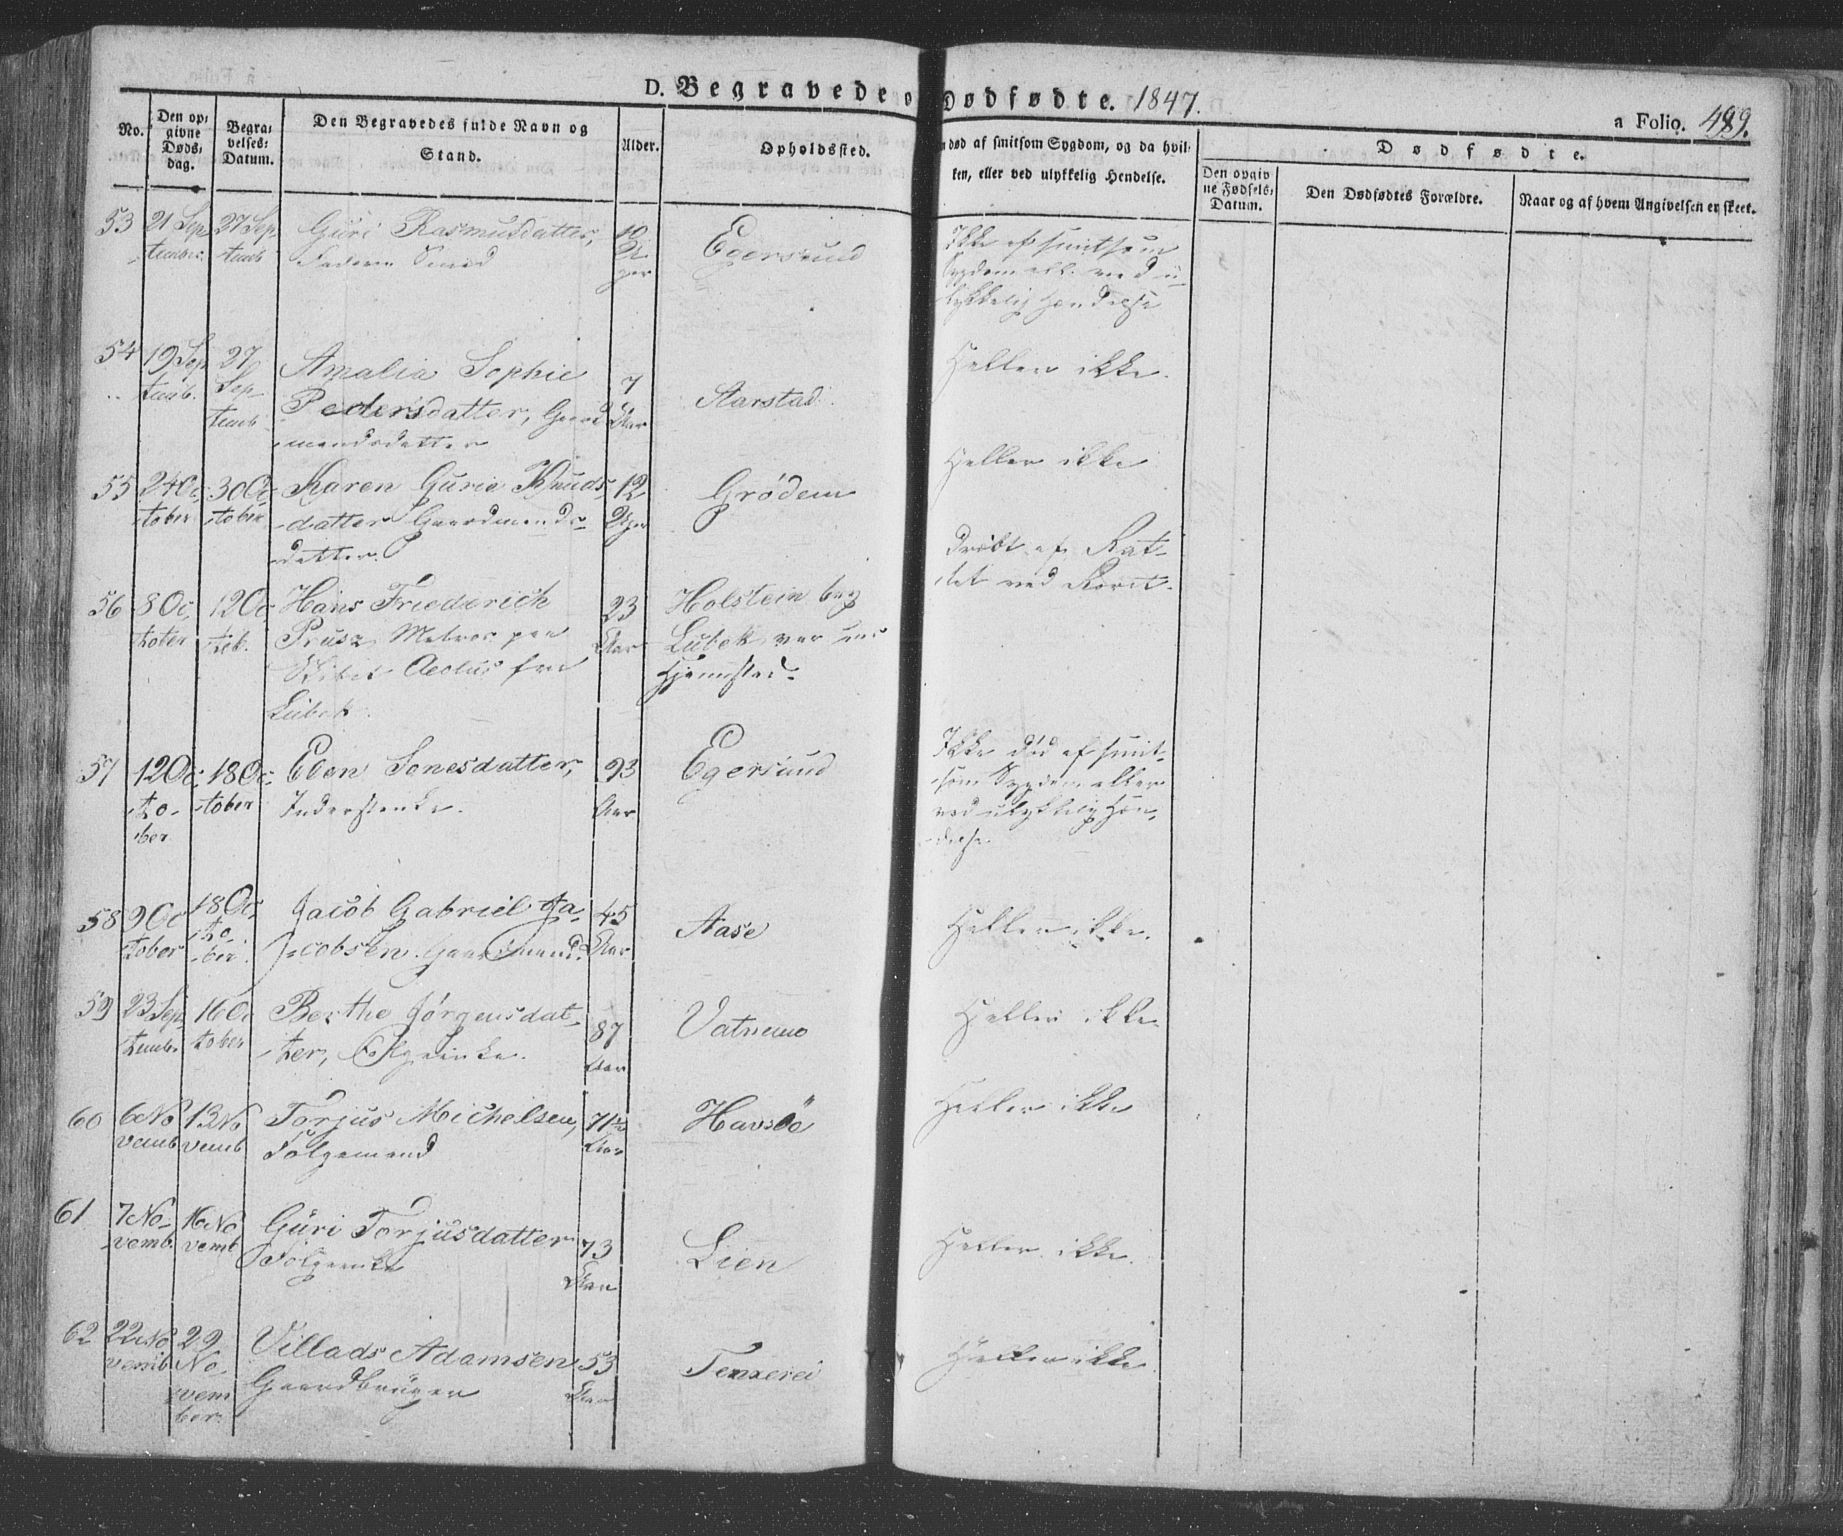 D. Begravede o
Dødfødte. 1847.
a Folio. 499.
No.
Den op-
givne
Døds-
dag.
Begra-
velses-
Datum.
Den Begravedes fulde Navn og
Stand.
Alder.
Opholdsted.
død af smitsom Sygdom, og da hvil-
ken, eller ved ulykkelig Hendelse.
Dødfødte.
Den opgiv
ne Fødsels-
Datum.
Den Dødfødtes Forældre.
Naar og af hvem Angivelsen er skeet.
53
21 Sep
tember
27 Sep
temb
Guri Rasmusdatter,
Faderen Smed
10
U
ger
Egersund
Ikke af smitsom
Sygdom ell. ved u-
lykkelig Hændelse
54
19 Sep
temb.
27
Sep
temb
Amalia Sophie
Pedersdatter, Gaard
mandsdatter
7
Aar
Aarstad
Heller ikke.
55
24 Oc
tober
30 Oc
tober
Karen Gurie Knuds
datter Gaardmands-
datter.
12
Uger
Grødem
Heller ikke
56
8 Oc
tober
12 Oc
tob.
Hans Friederich
Prusz Matros paa
Skibet Aeolus fra
Lubek.
23
Aar
Holstein beg
Lubek var hans
Hjemsted.
Dræbt af Rat-
tet ved Roret.
57
12 Oc
to-
ber
18 Oc
tober
Elen Jonesdatter,
Inderstenke.
93
Aar
Egersund
Ikke død af smit-
som Sygdom eller
ved ulykkelig Hæn-
delse.
58
9 Oc
tober
18 Oc
to-
ber
Jacob Gabriel Ja-
cobsen Gaardmand.
45
Aar
Aase
Heller ikke.
59
23 Sep
temb.
16 Oc
tober
Berthe Jørgensdat-
ter, Følgeenke.
87
Aar
Vatnemo
Heller ikke.
60
6 No
vemb
13 No
vemb
Torjus Michelsen,
Følgemand
71½
Aar
Havsöe
Heller ikke
61
7 No-
vemb.
16 No
vemb
Guri Torjusdatter
Følgeenke
73
Aar
Lien
Heller ikke.
62
22 No
vemb
29
No-
vem
ber.
Villads Adamsen
Gaardbruger
53
Aar
Tenxerei
Heller ikke